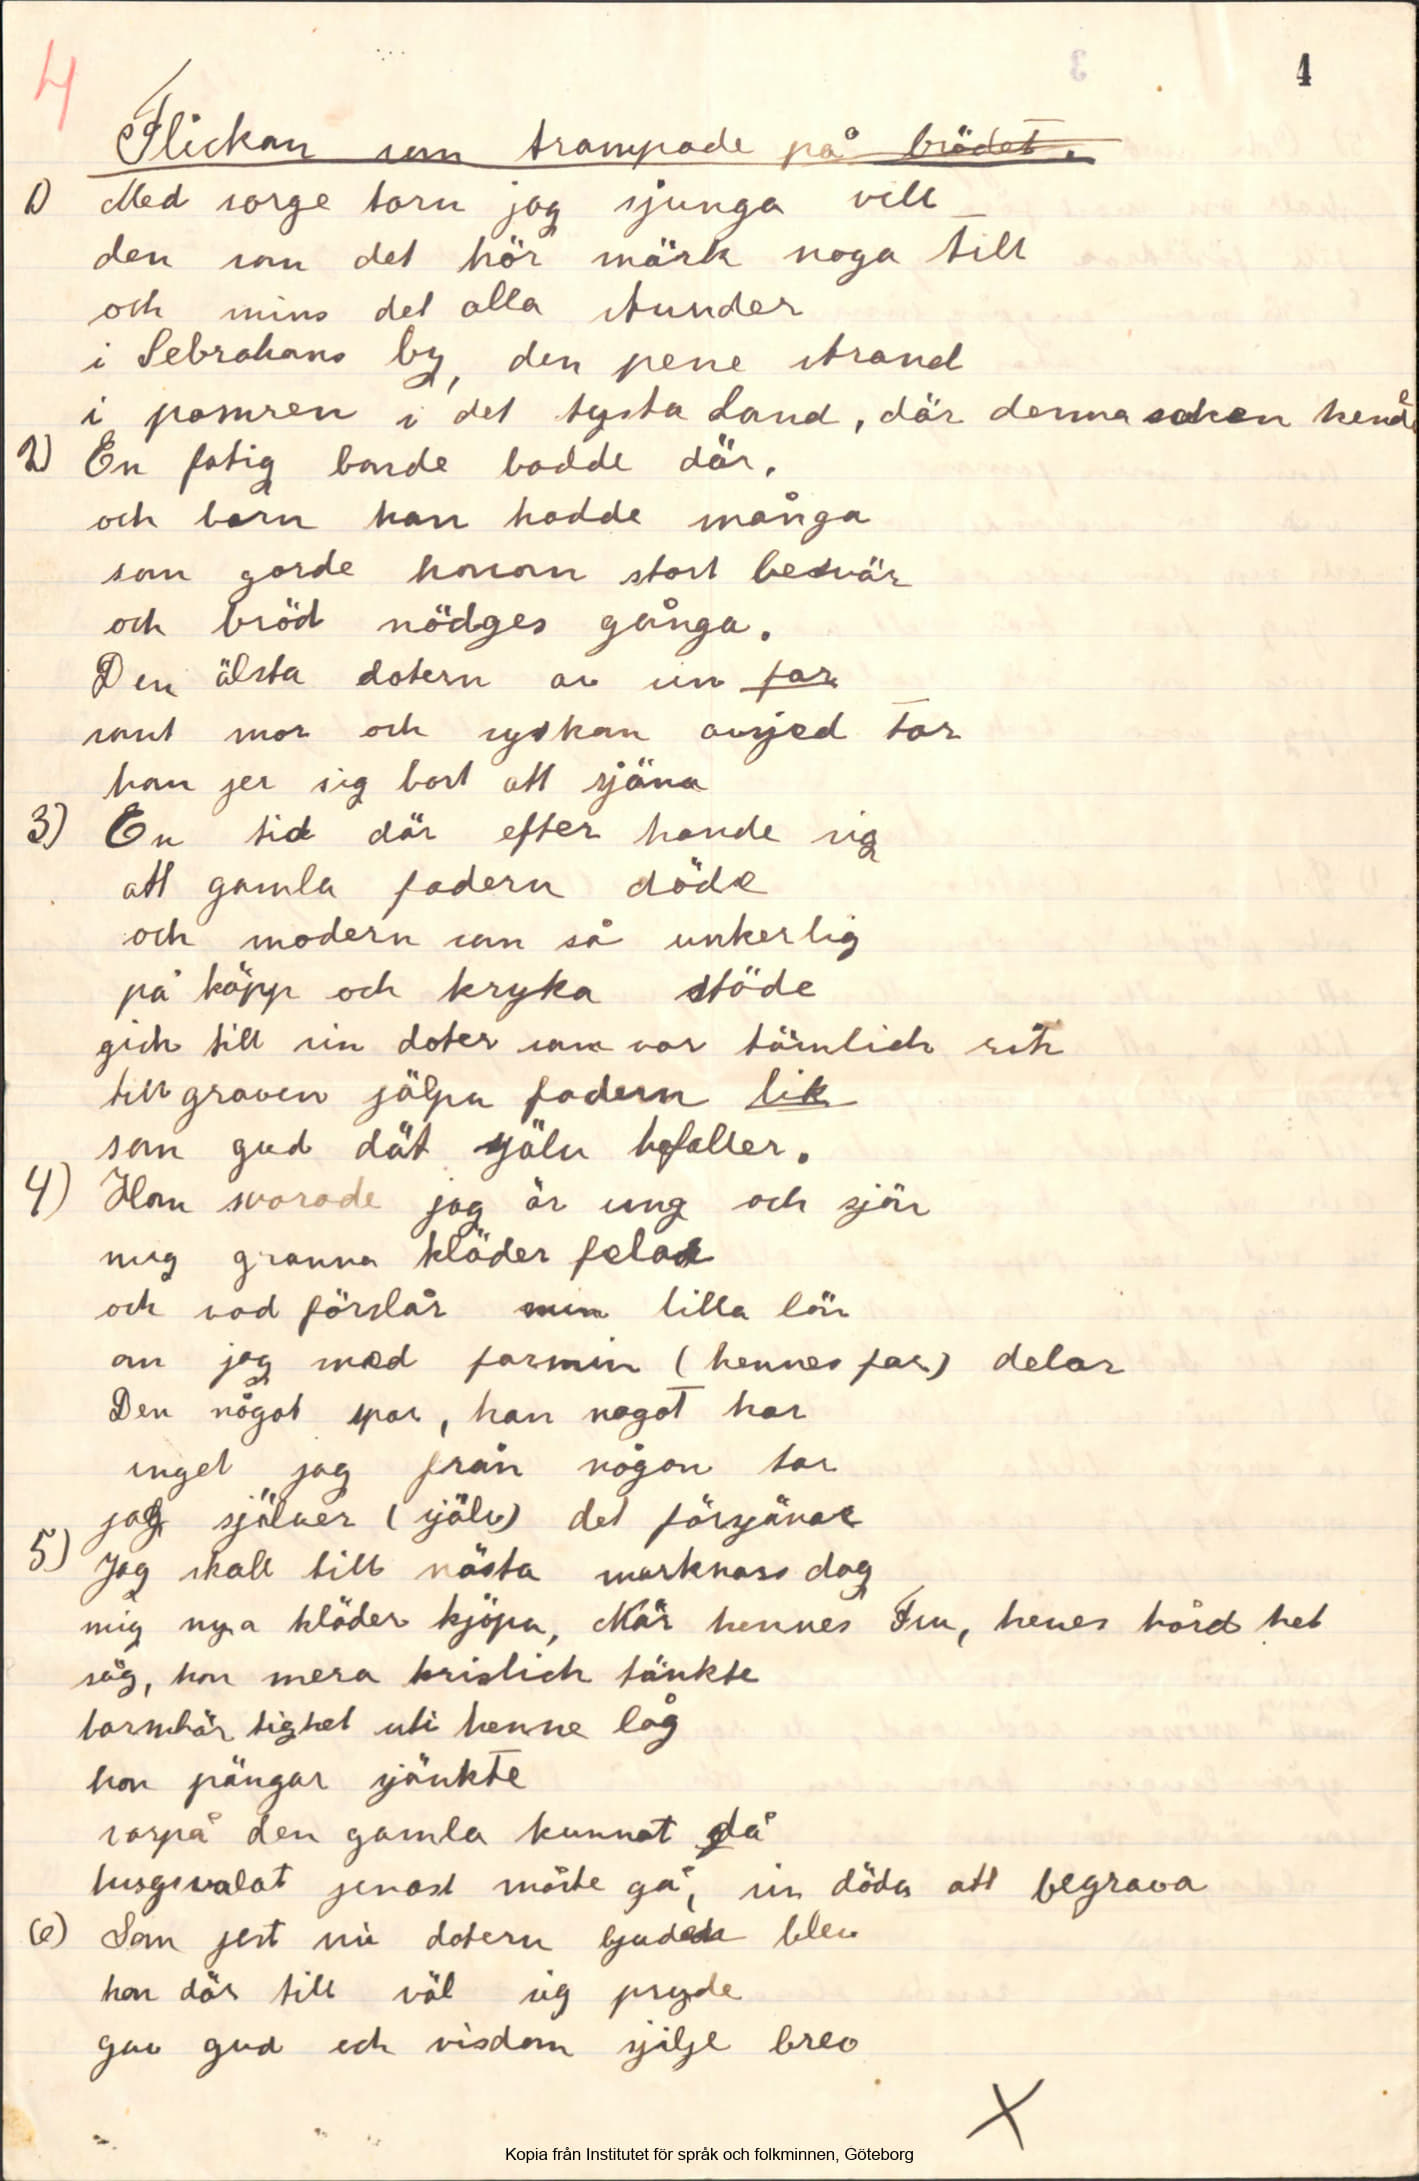 4
4
Flickan som trampade på brödet.
1) Med sorge torn jag sjunga vill
den som det hör märk noga till
och mins det alla stunder
i Sebrahans by, den pene strand
i pomren i det tysta Land, där denna saken hende
2) En fatig bonde bodde där,
och barn han hadde många
som gorde honom stort besvär
och bröd nödges gånga.
Den älsta dotern av sin far
samt mor och syskon avsjed tar
hon jer sig bort att sjäna
3) En tid där efter hande sig
att gamla fadern döde
och modern som så ynkerlig
på käpp och kryka stöde
gick till sin doter som var tämlich rik
till graven jälpa fadern lik
som gud dät själv befaller.
4) Hon svarade jag är ung och sjön
mig granna kläder felas
och vad förslår min lilla lön
om jag med farmin (hennes far) delar
Den något spar, han nagot har
inget jag från någon tar
jag sjålver (sjålv) det försjänar
5) Jag skall till nästa marknass dag
mig nya kläder kjöpa, När hennes Fru, henes hård het
såg, hon mera krislich tänkte
barmhär tighet uti henne låg
hon pängar sjänkte
varpå den gamla kunnat då
husgivalat jenast måste gå, sin döda att begrava
6) Som jest nu dotern bjuden blev
hon där till väl sig pryde
gav gud och visdom sjilje brev
X
Kopia från Institutet för språk och folkminnen, Göteborg